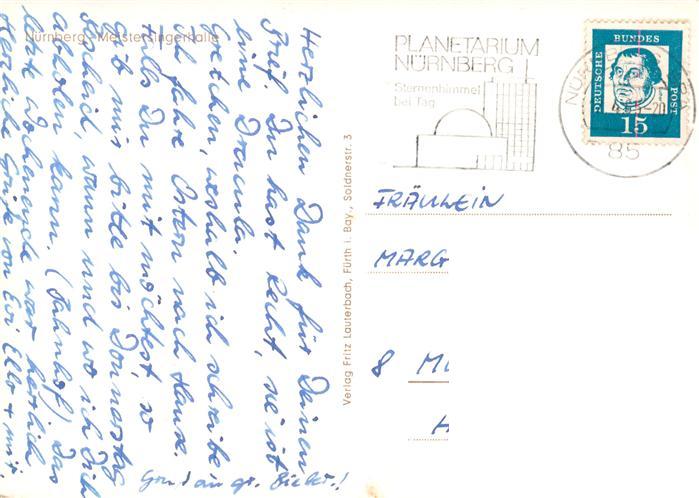 Nürnberg, Meistersingerhalle
Herzlichen Dank für Deinen
Brief. Du hast Recht, sie ist
eine Dracula.
Gretchen, weshalb ich schreibe
ich fahre Ostern nach Hause.
Falls Du mit möchtest, so
gib mir bitte bis Donnerstag
Bescheid, wann und wo ich Dich
abholen kann. (Bahnhof) Das
letzte Wochenende war herrlich
Herzliche Grüße von Evi, Ello + mir.
Verlag Fritz Lauterbach, Fürth i. Bay., Soldnerstr. 3
PLANETARIUM
NÜRNBERG
Sternenhimmel
bei Tag
DEUTSCHE BUNDES POST
15
85
FRÄULEIN
MARG
8 M